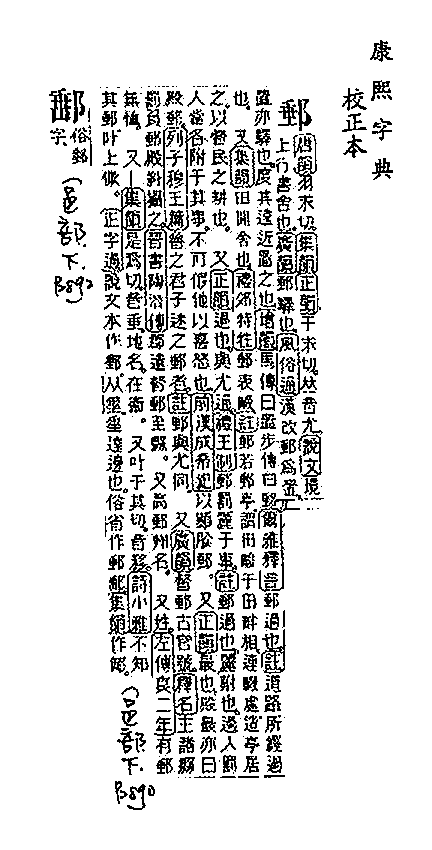 康熙字典
校正本
郵
唐韻羽求切集韻正韻于求切𠀤音尤說文境
上行書舍也廣韻郵驛也風俗通漢改郵爲置
置亦驛也度其遠近置之也增韻馬傳曰置步傳曰郵爾雅釋言郵過也註道路所經過
也又集韻田閒舍也禮郊特牲郵表畷註郵若郵亭謂田畯于田畔相連畷處造亭居
之以督民之耕也又正韻過也與尤通禮王制郵罰麗于事註郵過也麗附也過人罰
人當各附于其事不可假他以喜怒也前漢成帝紀以顯朕郵又正韻最也殿最亦曰
殿郵列子穆王篇魯之君子迷之郵者註郵與尤同又廣韻督郵古官號釋名主諸縣
罰負郵殿糾攝之晉書陶潛傳郡遣督郵至縣又高郵州名又姓左傳哀二年有郵
無恤又集韻是爲切音垂地名在衞又叶于其切音移詩小雅不知
其郵叶上僛正字通說文本作郵从垂垂遠邊也俗省作郵集韻作
(邑部下. B890)
俗郵
字
(邑部.下. B892)